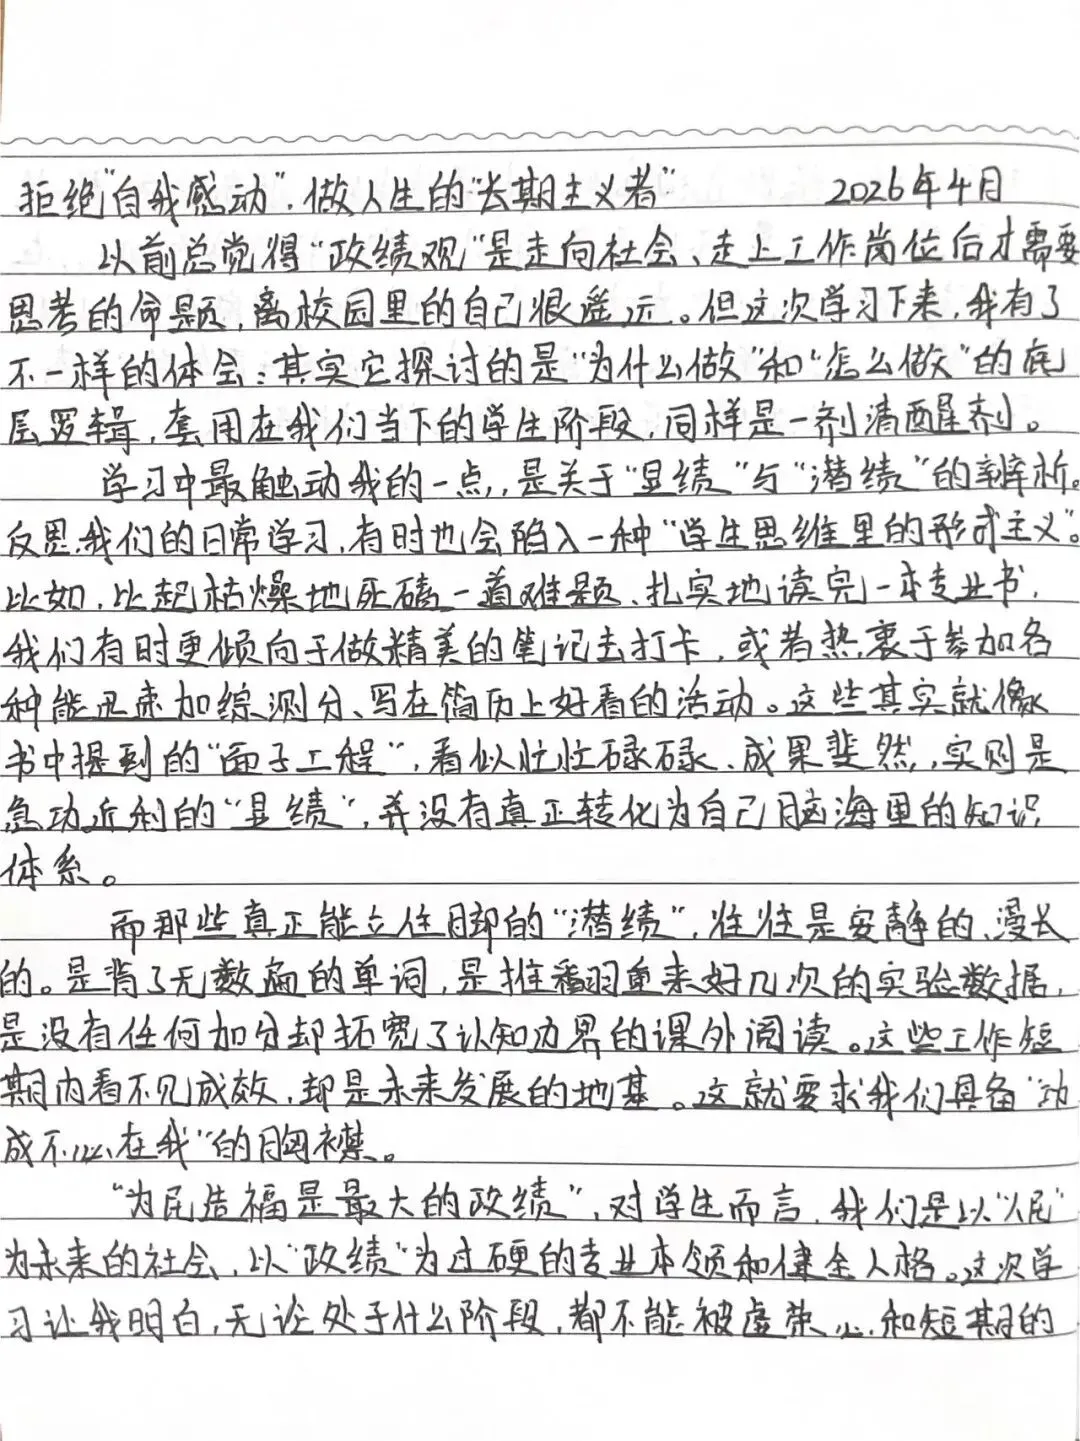 拒绝"自我感动",做人生的"长期主义者" 2026年4月
以前总觉得"政绩观"是走向社会、走上工作岗位后才需要
思考的命题,离校园里的自己很遥远。但这次学习下来,我有了
不一样的体会:其实它探讨的是"为什么做"和"怎么做"的底
层逻辑,套用在我们当下的学生阶段,同样是一剂清醒剂。
学习中最触动我的一点,是关于"显绩"与"潜绩"的辨析。
反思我们的日常学习,有时也会陷入一种"学生思维里的形式主义"。
比如,比起枯燥地死磕一道难题、扎实地读完一本专业书,
我们有时更倾向于做精美的笔记去打卡,或者热衷于参加各
种能迅速加综测分、写在简历上好看的活动。这些其实就像
书中提到的"面子工程",看似忙忙碌碌、成果斐然,实则是
急功近利的"显绩",并没有真正转化为自己脑海里的知识
体系。
而那些真正能立住脚的"潜绩",往往是安静的、漫长
的。是背了无数遍的单词,是推翻重来好几次的实验数据,
是没有任何加分却拓宽了认知边界的课外阅读。这些工作短
期内看不见成效,却是未来发展的地基。这就要求我们具备"功
成不必在我"的胸襟。
"为民造福是最大的政绩",对学生而言,我们是以"人民"
为未来的社会,以"政绩"为过硬的专业本领和健全人格。这次学
习让我明白,无论处于什么阶段,都不能被虚荣心和短期的